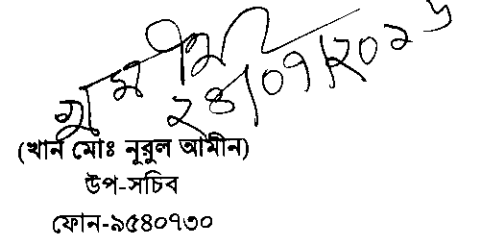 ২৪/০৭/২০১৬
(খান মোঃ নূরুল আমীন)
উপ-সচিব
ফোন-৯৫৪০৭৩০